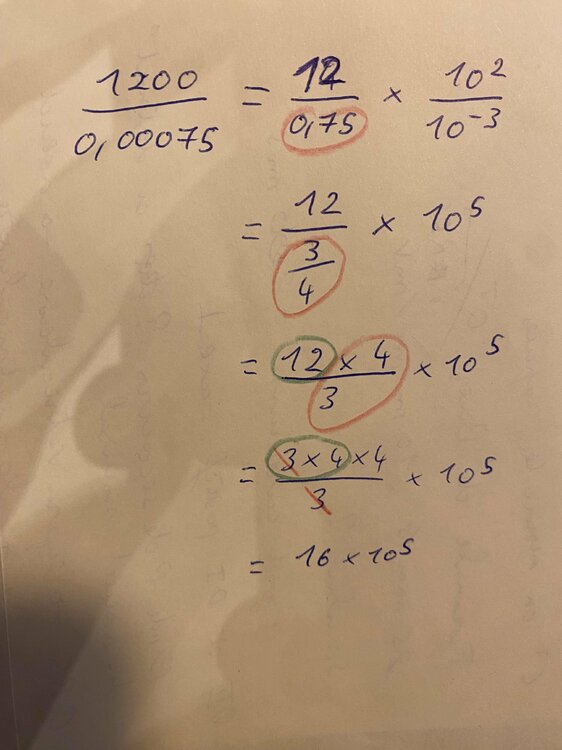 1200/0,00075 = 12/0,75 × 10²/10⁻³
= 12/(3/4) × 10⁵
= (12 × 4)/3 × 10⁵
= (3 × 4 × 4)/3 × 10⁵
= 16 × 10⁵